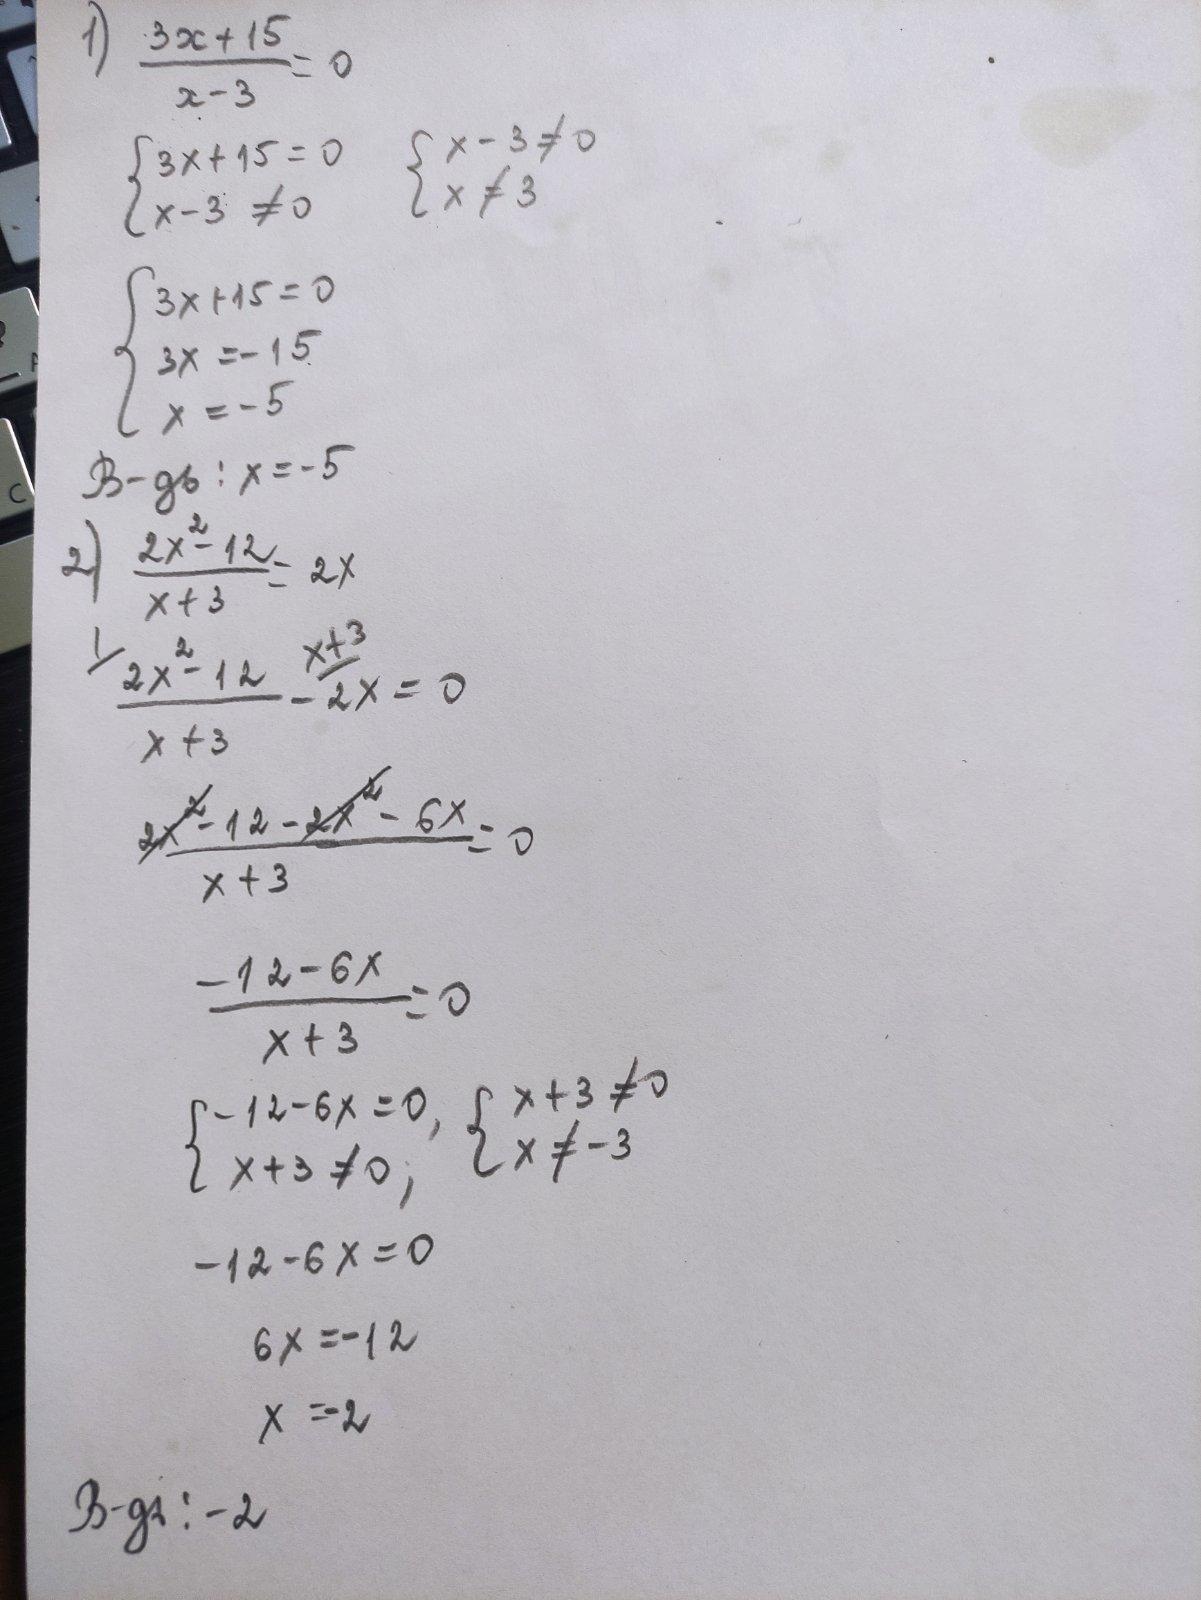 1) (3x+15)/(x-3) = 0
{3x+15=0 {x-3≠0
{x-3 ≠0 {x≠3
{3x+15=0
3x=-15
x=-5
В-дь: x=-5
2) (2x²-12)/(x+3) = 2x
1/ (2x²-12)/(x+3) - x+3/ 2x = 0
(2x²-12-2x²-6x)/(x+3) = 0
(-12-6x)/(x+3) = 0
{-12-6x=0, {x+3≠0
{x+3≠0; {x≠-3
-12-6x=0
6x=-12
x=-2
В-дь: -2